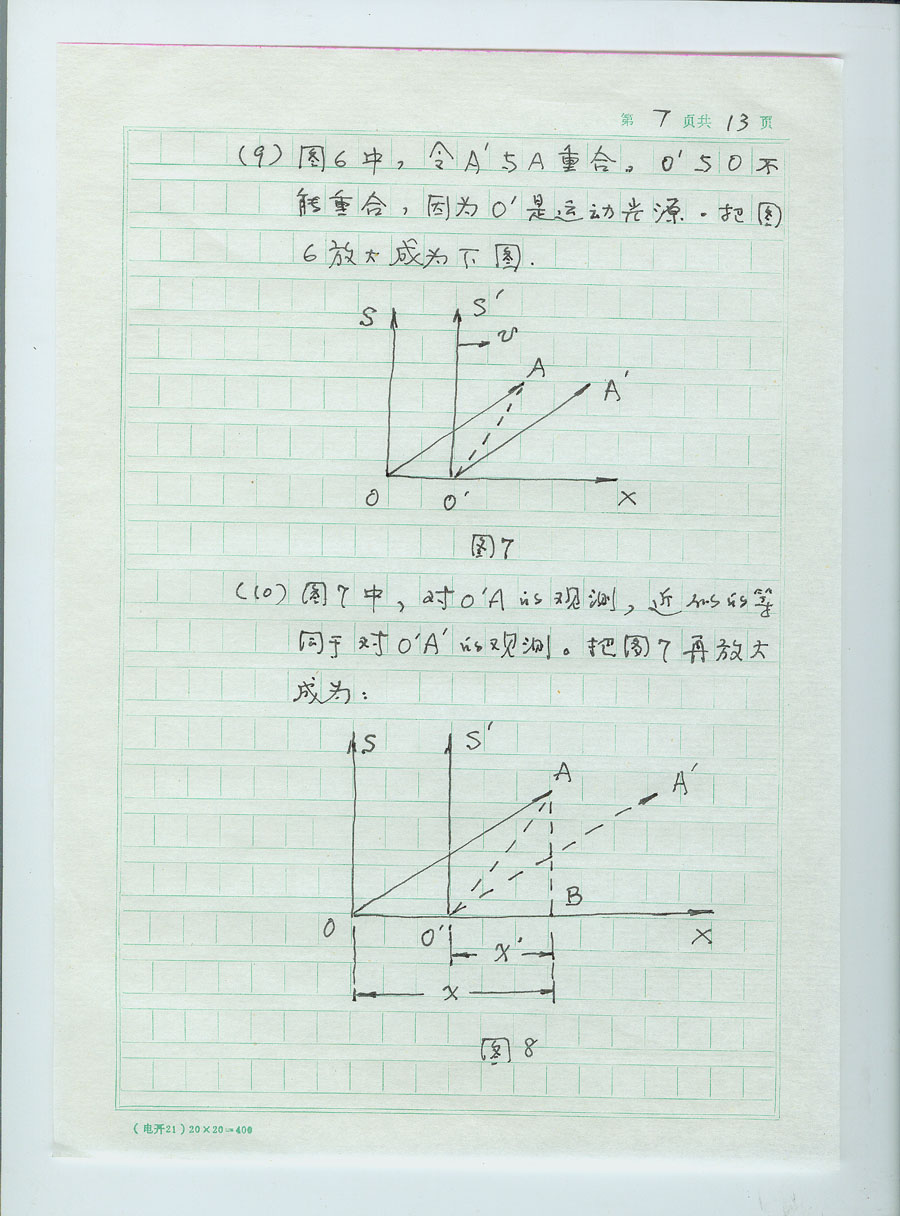 第 7 页共 13 页
(9) 图6中，令A′与A重合。O′与O不
能重合，因为O′是运动光源．把图
6放大成为下图．
S S′
v
A A′
O O′ X
图7
(10) 图7中，对O′A的观测，近似的等
同于对O′A′的观测。把图7再放大
成为：
S S′
A A′
B
O O′ X
x′
x
图8
(电开21)20×20=400